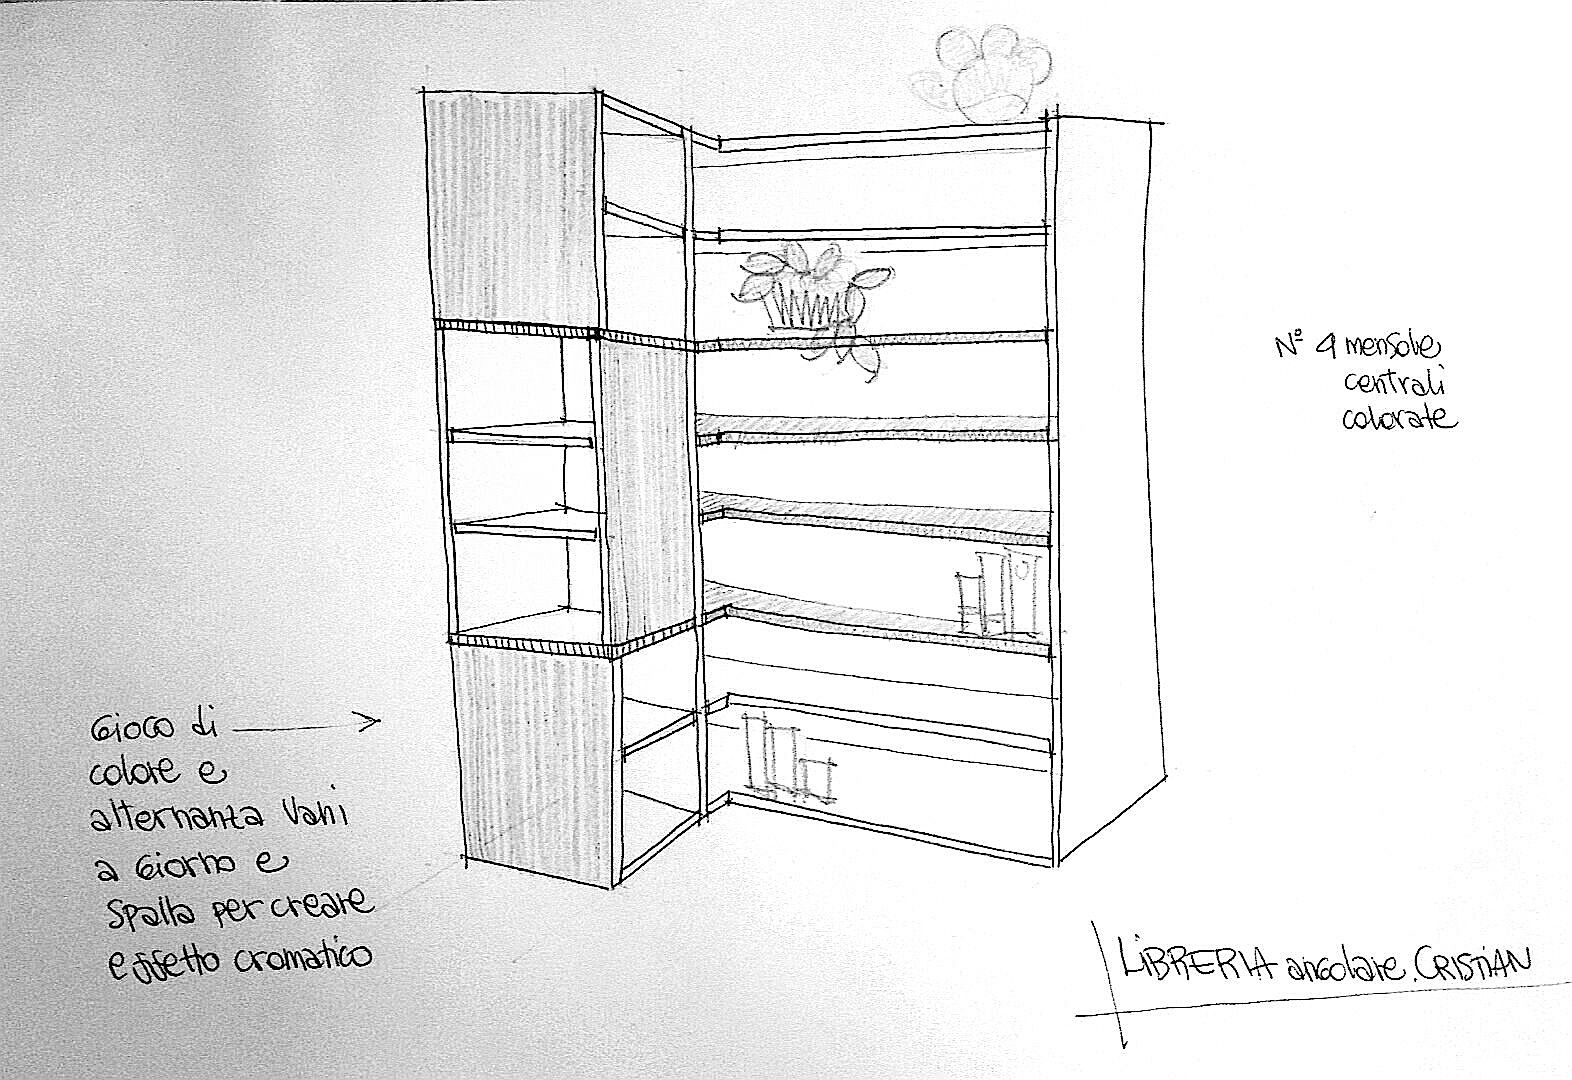 N° 4 mensole
centrali
colorate
Gioco di
colore e
alternanza Vani
a Giorno e
Spalla per creare
effetto cromatico
LiBRERIA angolare. CRISTIAN